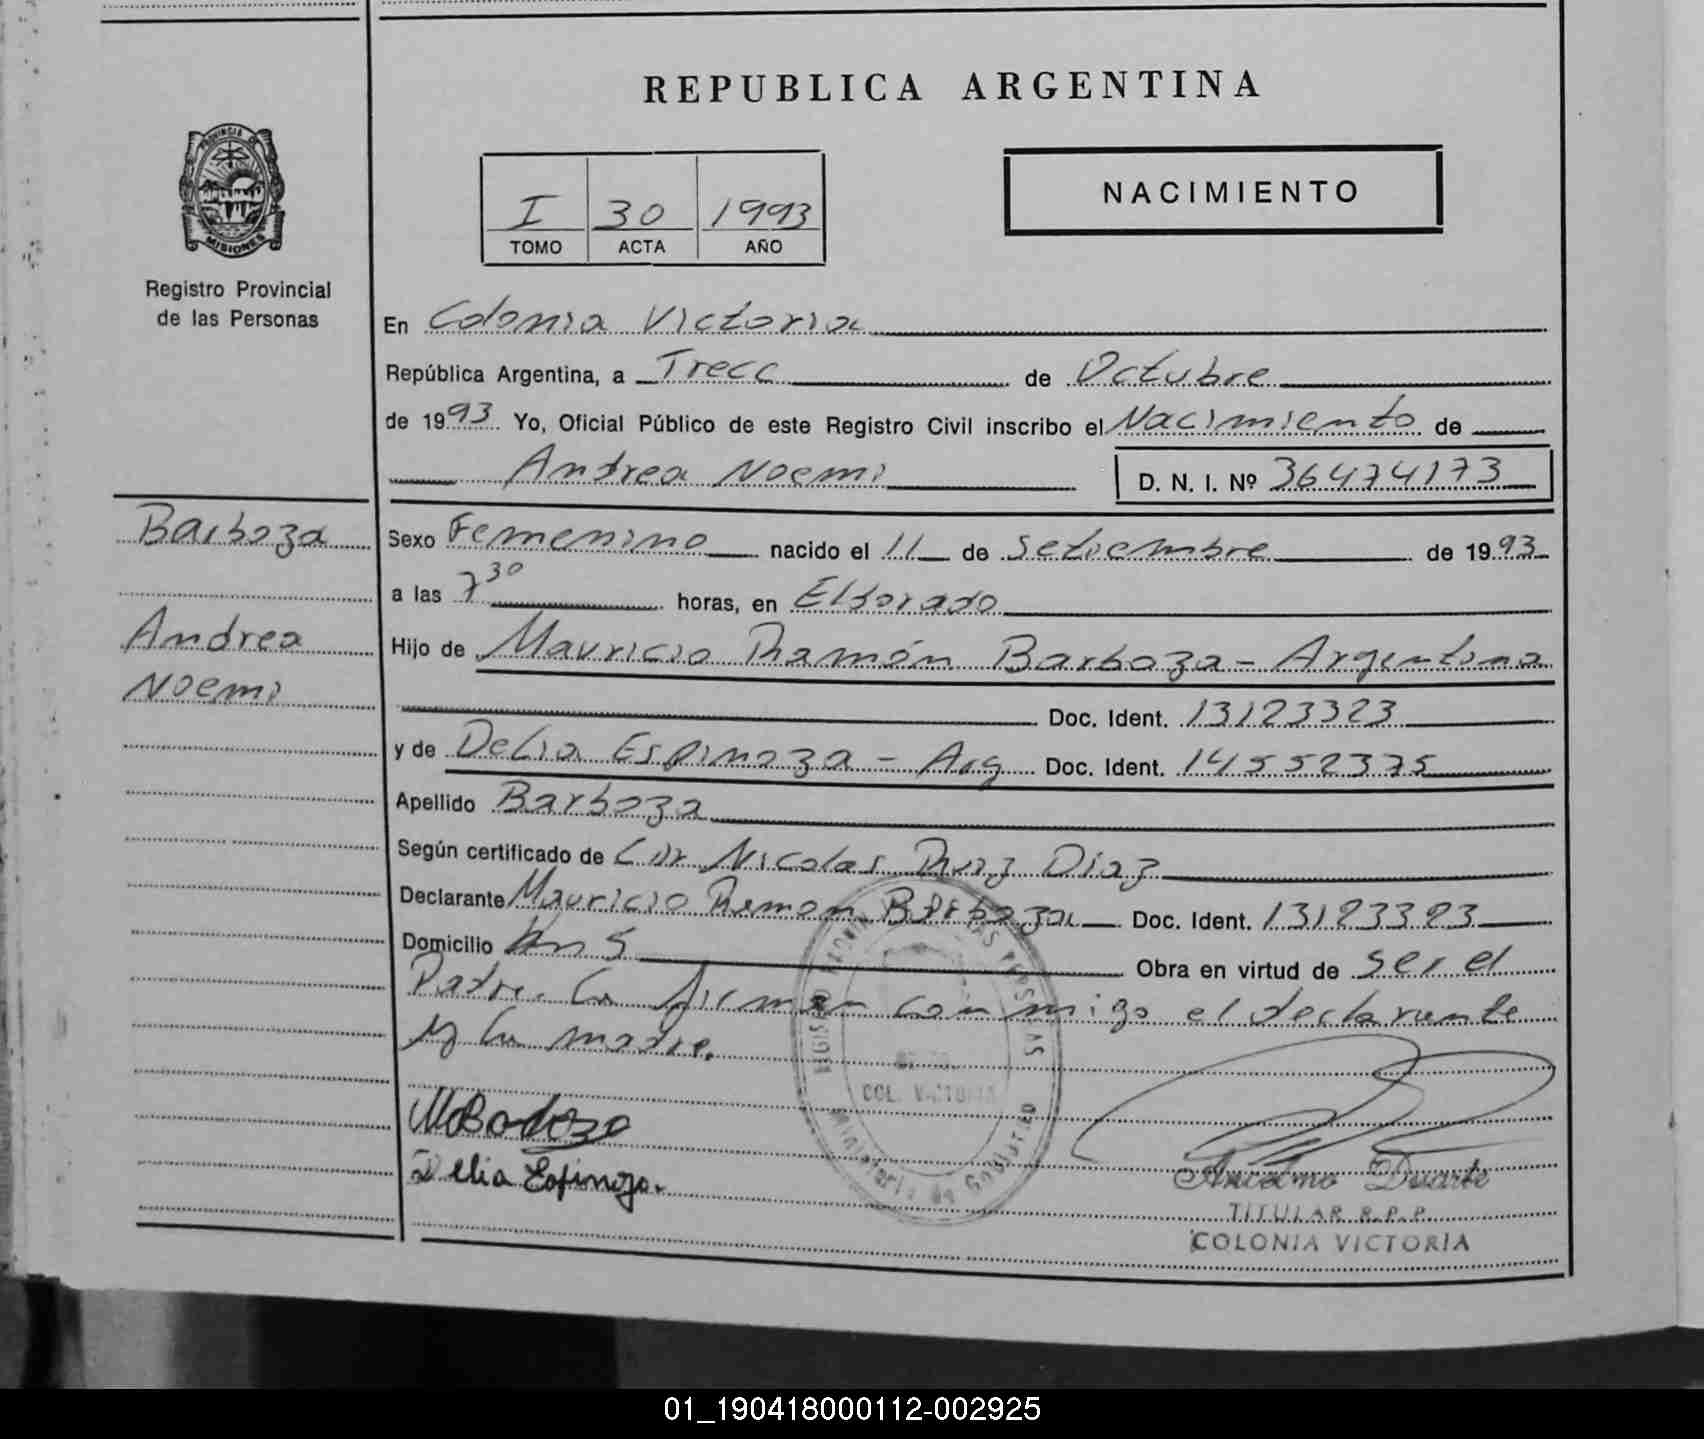 REPUBLICA ARGENTINA
PROVINCIA DE
MISIONES
Registro Provincial
de las Personas
I 30 1993
TOMO ACTA AÑO
NACIMIENTO
En Colonia Victoria
República Argentina, a Trece de Octubre
de 1993 Yo, Oficial Público de este Registro Civil inscribo el Nacimiento de
Andrea Noemi D. N. I. Nº 36474173
Barboza
Andrea
Noemi
Sexo Femenino nacido el 11 de Setiembre de 1993
a las 7 30 horas, en Eldorado
Hijo de Mauricio Ramón Barboza - Argentina
Doc. Ident. 13123323
y de Delia Espinoza - Arg Doc. Ident. 14552375
Apellido Barboza
Según certificado de Nicolas Ruiz Diaz
Declarante Mauricio Ramon Barboza Doc. Ident. 13123323
Domicilio Km 5 Obra en virtud de ser el
Padre. La firman conmigo el declarante
y la madre.
MRBarboza
Delia Espinoza.
COL. VICTORIA
Ministerio de Gobierno
Anselmo Duarte
TITULAR R.P.P.
COLONIA VICTORIA
01_190418000112-002925